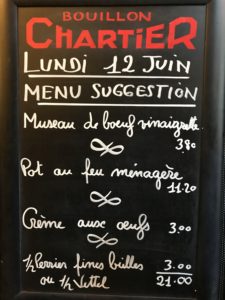 BOUILLON
CHARTIER
LUNDI 12 JUIN
MENU SUGGESTION
Museau de boeuf vinaigrette
3.80
Pot au feu ménagère
11.20
Crème aux oeufs 3.00
1/4 Perrier fines bulles 3.00
ou 1/4 Vittel 21.00